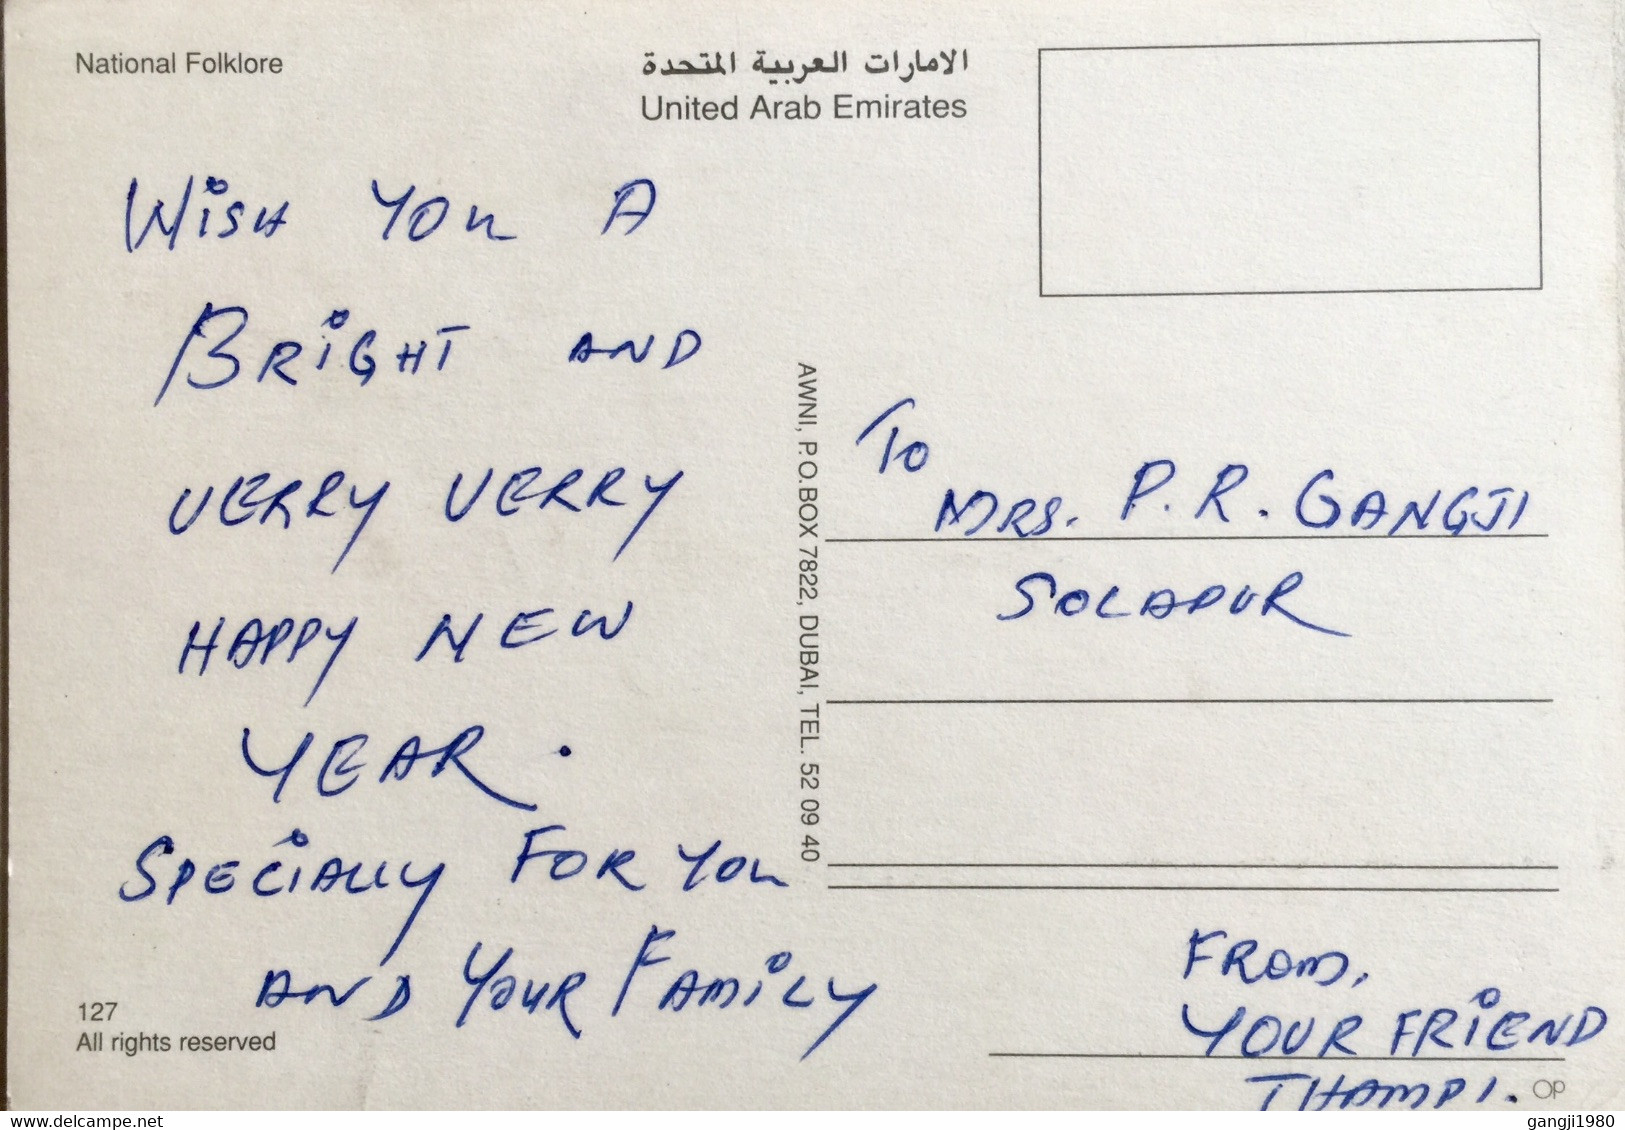 National Folklore
الامارات العربية المتحدة
United Arab Emirates
WiSH YOU A
BRiGHT AND
VERRY VERRY
HAPPY NEW
YEAR.
SPECiALLY FOR YOU
AND YOUR FAMiLY
127
All rights reserved
AWNI, P.O.BOX 7822, DUBAI, TEL. 52 09 40
To
MRS. P. R. GANGJI
SOLAPUR
FROM,
YOUR FRiEND
THAMPI.
OP
delcampe.net
gangji1980